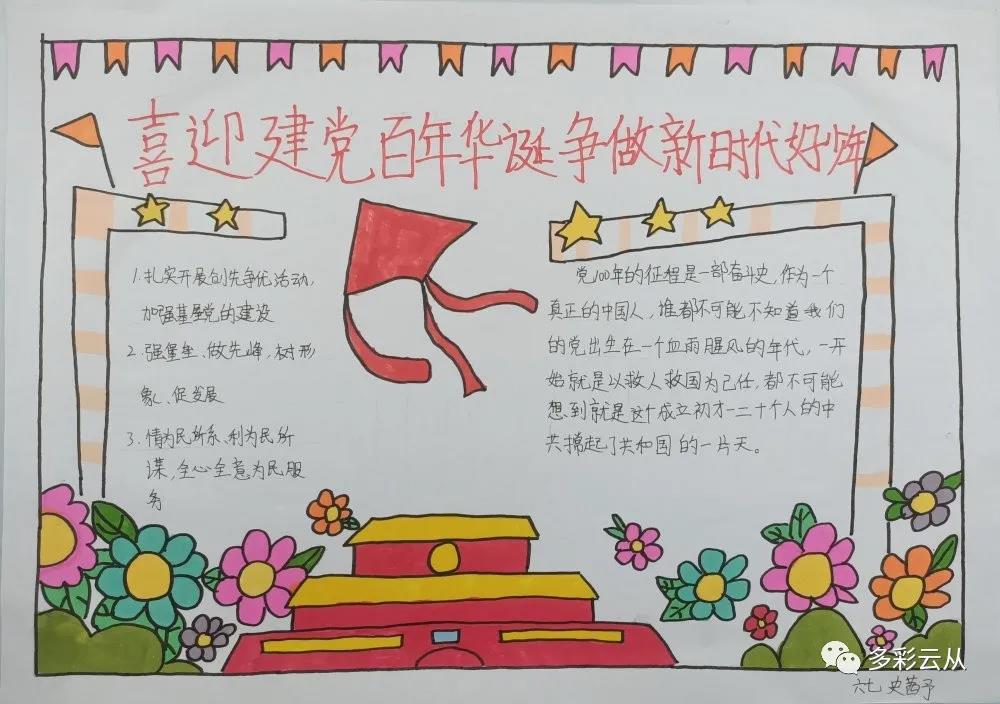 喜迎建党百年华诞争做新时代好少年
1.扎实开展创先争优活动,
加强基层党的建设
2.强堡垒、做先峰,树形
象、促发展
3.情为民所系、利为民所
谋,全心全意为民服
务
党100年的征程是一部奋斗史,作为一个
真正的中国人,谁都不可能不知道我们
的党出生在一个血雨腥风的年代,一开
始就是以救人救国为己任,都不可能
想到就是这个成立初才一二十个人的中
共撑起了共和国的一片天。
多彩云从
六七 史茜予